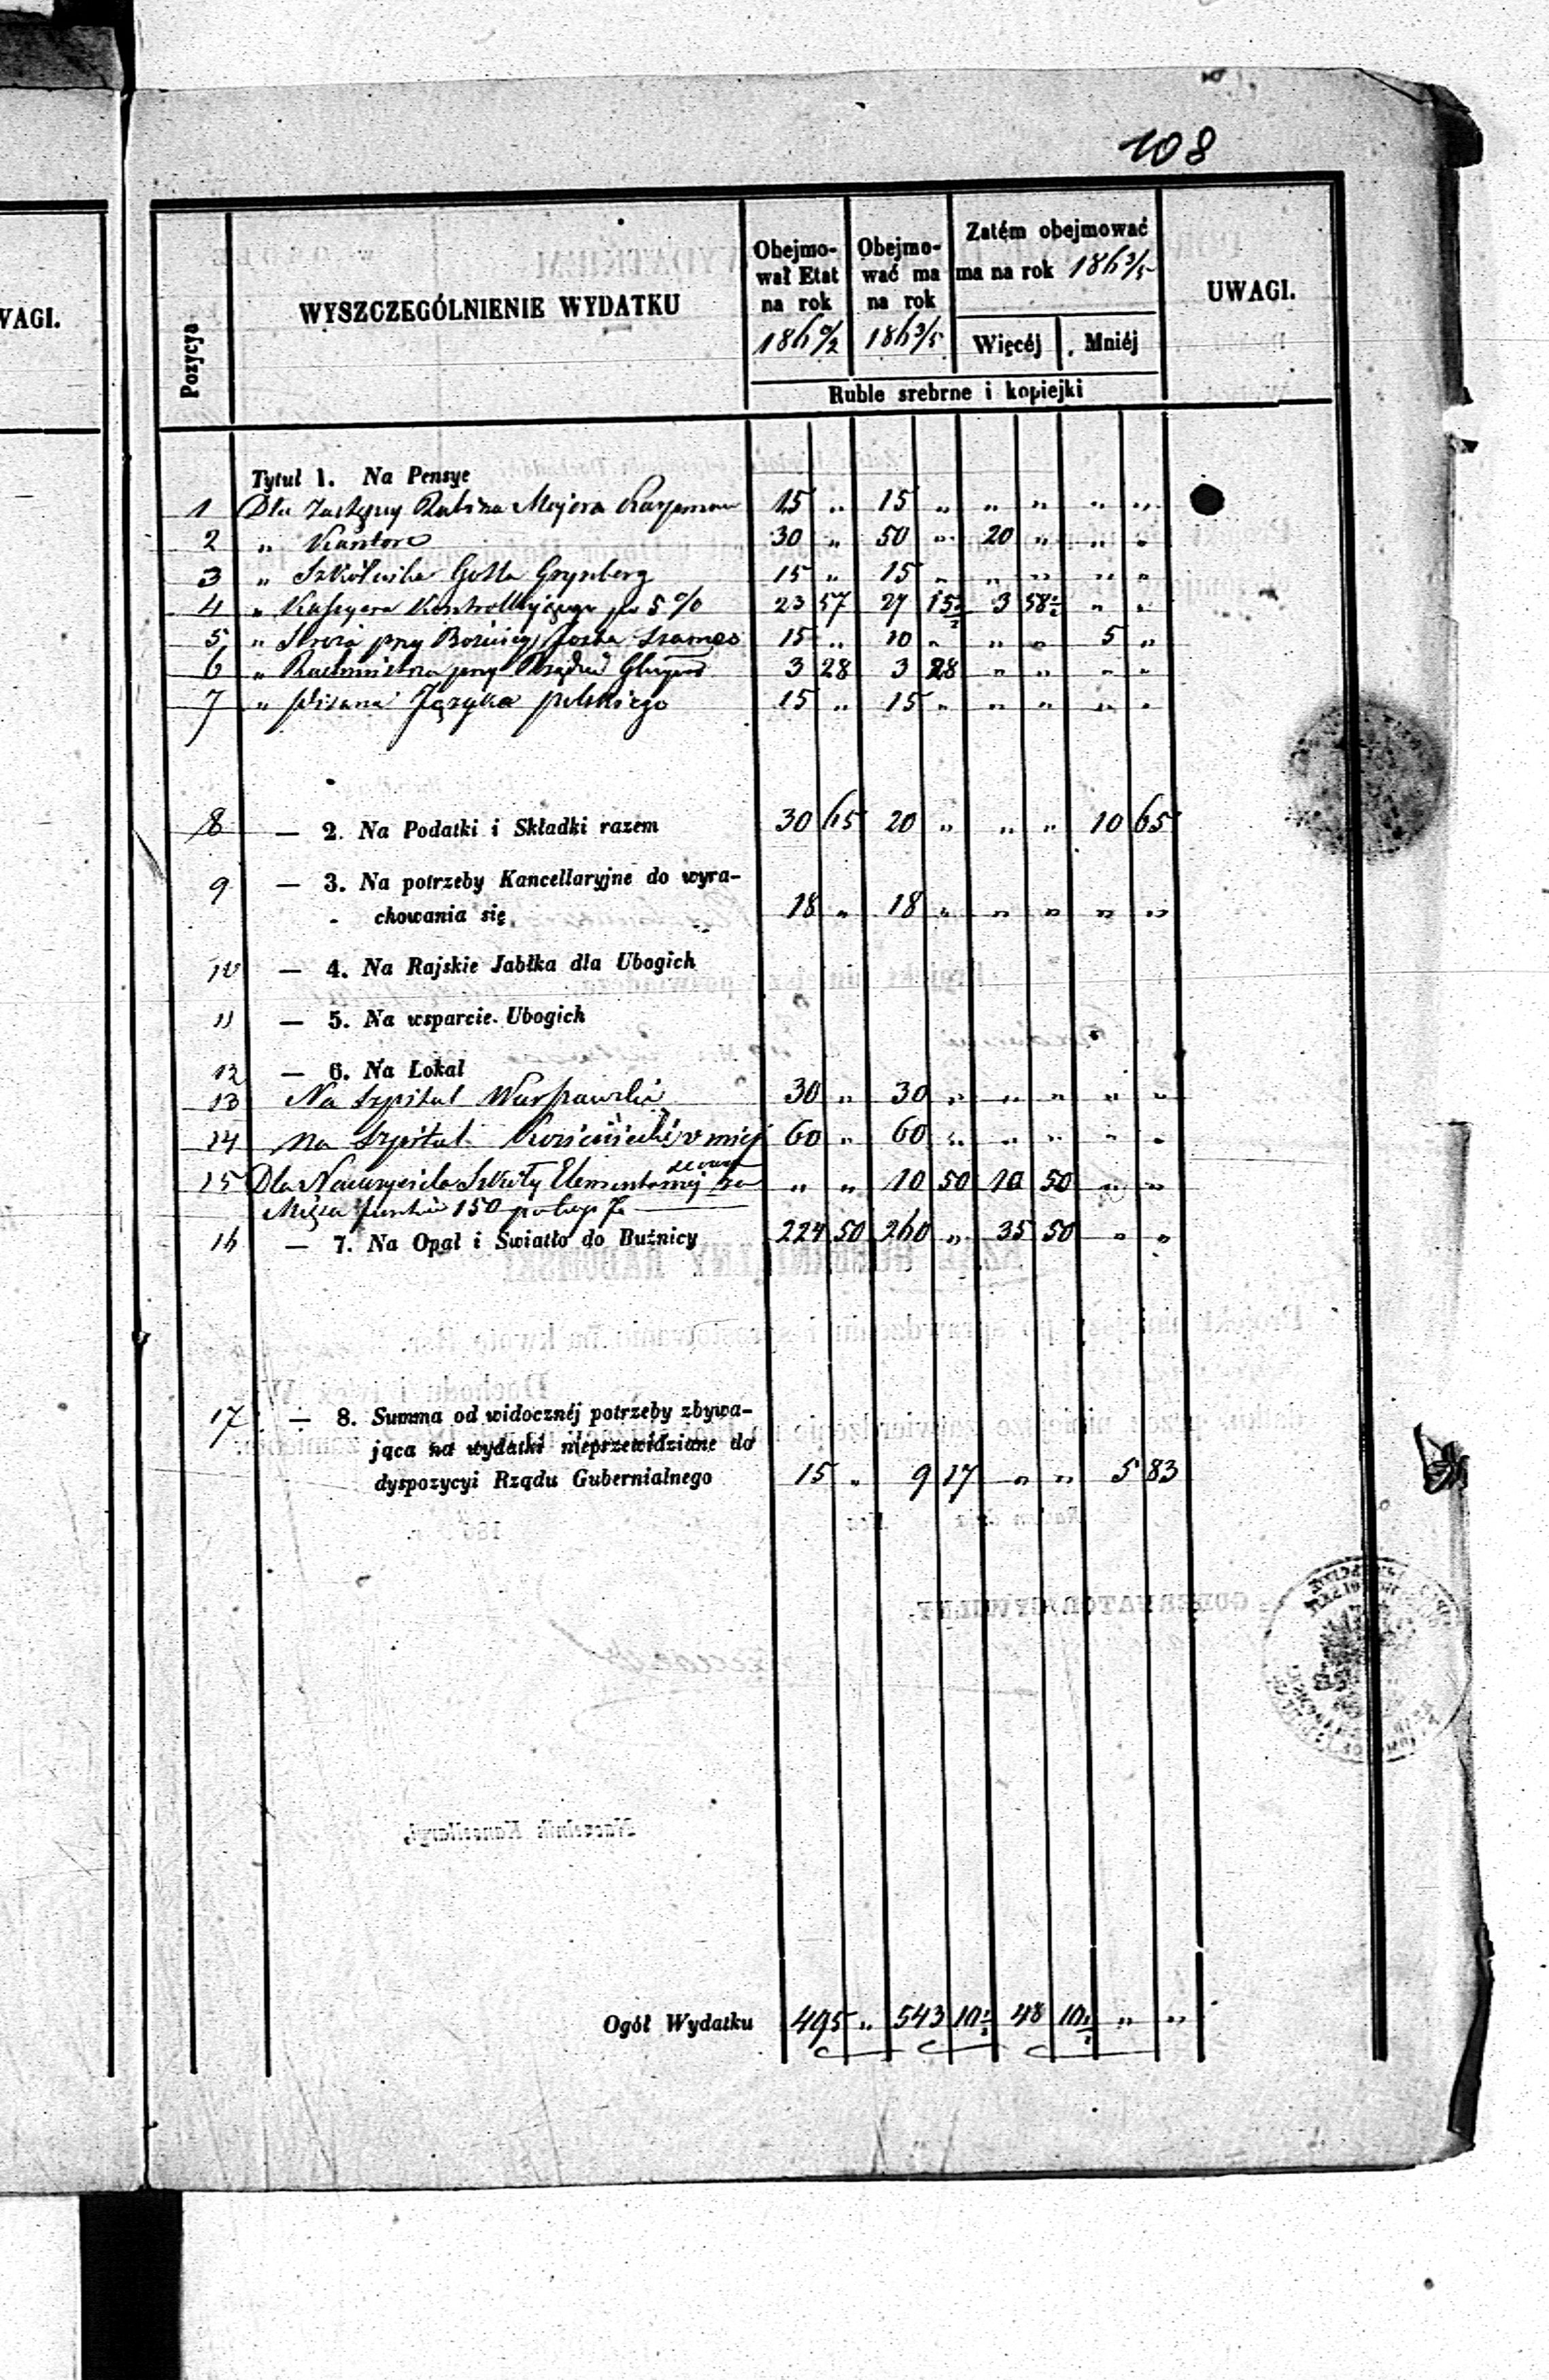 108
WAGI.
Pozycya
WYSZCZEGÓLNIENIE WYDATKU
Obejmo-
wał Etat
na rok
186 0/2
Obejmo-
wać ma
na rok
186 3/5
Zatém obejmować
ma na rok 186 3/5
Więcéj
Mniéj
UWAGI.
Ruble srebrne i kopiejki
Tytuł 1. Na Pensye
1 Dla Zastępcy Rabina Mejera 15 „ 15 „ „ „ „ „
2 „ Kantora 30 „ 50 „ 20 „ „ „
3 „ Szkólnika Gosla Grynberg 15 „ 15 „ „ „ „ „
4 „ Kassyera Kontrollującego po 5 % 23 57 27 15½ 3 58½ „ „
5 „ Stróża przy Bóźnicy Joska Szames 15 „ 10 „ „ „ 5 „
6 „ Rachmistrza przy Rządzie 3 28 3 28 „ „ „ „
7 „ Pisana Języka polskiego 15 „ 15 „ „ „ „ „
8 — 2. Na Podatki i Składki razem 30 65 20 „ „ „ 10 65
9 — 3. Na potrzeby Kancellaryjne do wyra-
chowania się 18 „ 18 „ „ „ „ „
10 — 4. Na Rajskie Jabłka dla Ubogich
11 — 5. Na wsparcie Ubogich
12 — 6. Na Lokal
13 Na Szpital Warszawski 30 „ 30 „ „ „ „ „
14 Na Szpital w miej 60 „ 60 „ „ „ „ „
15 Dla Nauczyciela Szkoły Elementarnej „ „ 10 50 10 50 „ „
150
16 — 7. Na Opał i Światło do Buźnicy 224 50 260 „ 35 50 „ „
17 — 8. Summa od widocznéj potrzeby zbywa-
jąca na wydatki nieprzewidziane do
dyspozycyi Rządu Gubernialnego 15 „ 9 17 „ „ 5 83
Ogół Wydatku 495 „ 543 10½ 48 10½ „ „